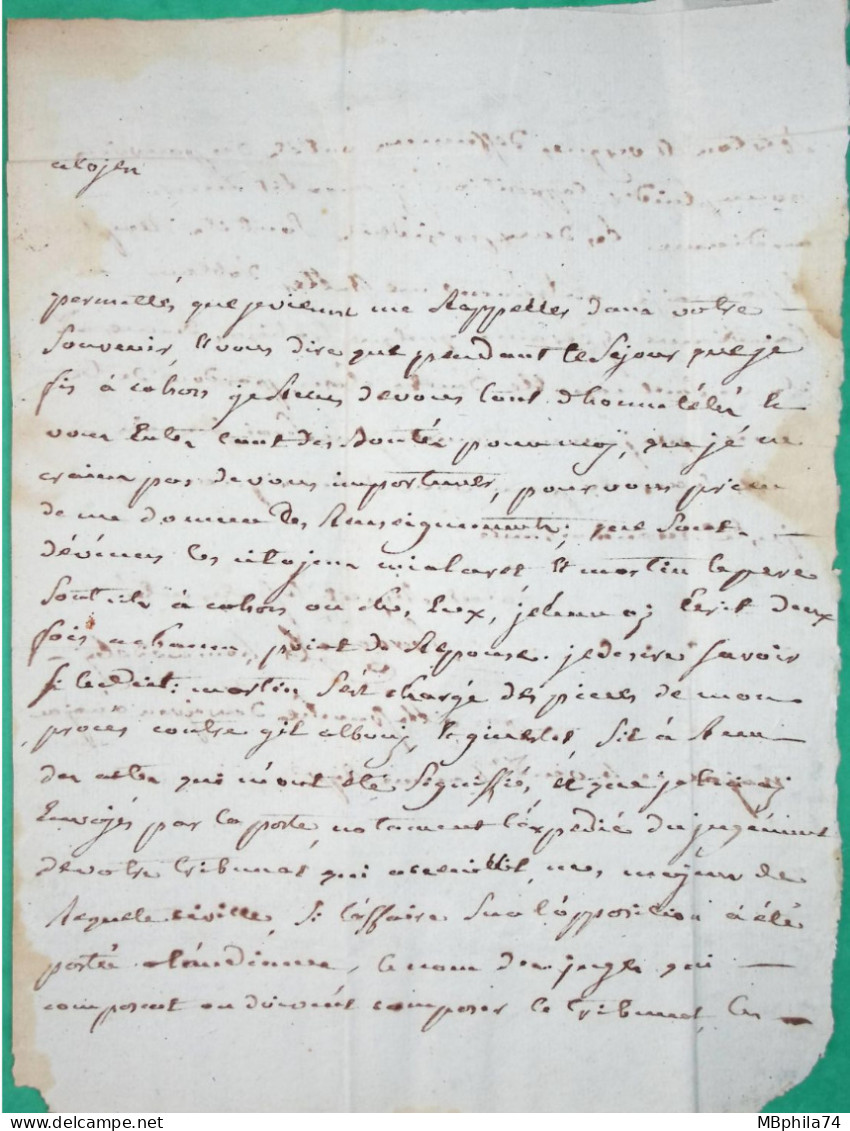 citoyen
permettés que je vienne me Rappeller dans votre
souvenir, et vous dire que pendant le sejour que je
fis à cahors je Reçus de vous tant d'honnetetés et
vous Eutes tant des Bontés pour moy, que je ne
crains pas de vous importuner, pour vous prier
de me donner des Renseignements; que sont
dévenus les citoyens mialaret et martin lepere
sont ils à cahors ou chés Eux, je leur ay Ecrit deux
fois a chacun point de Reponse. je desire savoir
si ledit: martin s'est chargé des pieces de mon
procés contre gil albouy, et qu'est
des actes qui m'ont été signiffiés, et que je luy ay
Envoyés par la poste, notament l'expedié du jugément
de votre tribunal qui accueillit mes moyens de
Requete civille, si l'affaire sur l'opposition à été
portée à l'audience, le nom des juges qui
composent ou doivent composer le tribunal, les
MBphila74